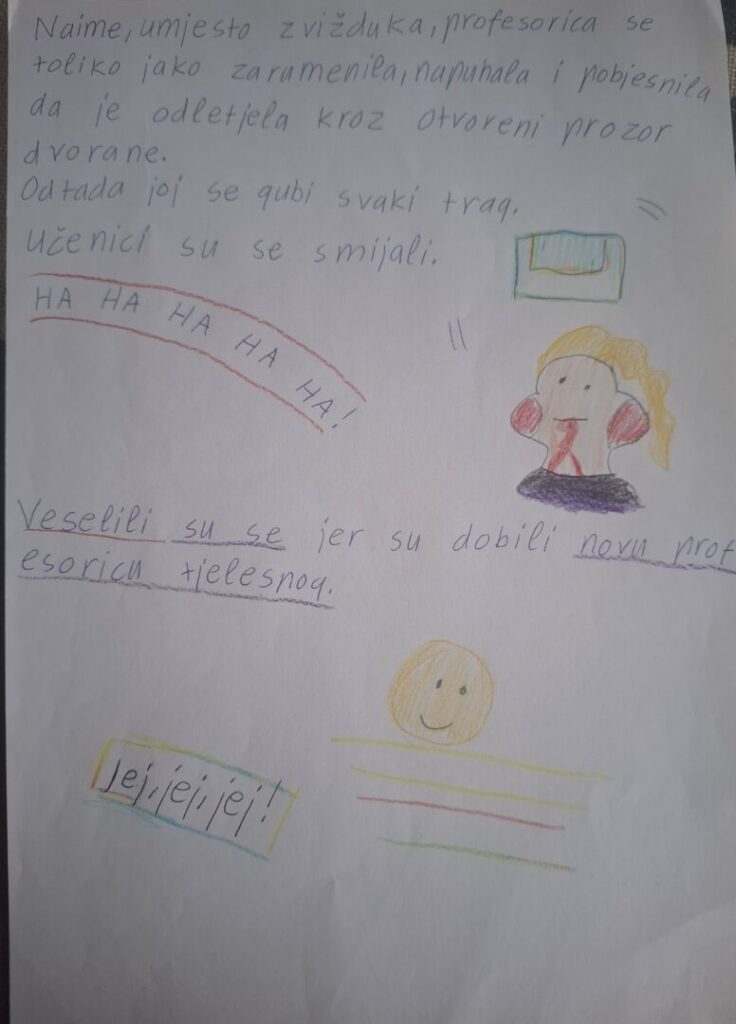 Naime, umjesto zvižduka, profesorica se
toliko jako zarumenila, napuhala i pobjesnila
da je odletjela kroz otvoreni prozor
dvorane.
Odtada joj se gubi svaki trag.
Učenici su se smijali.
HA HA HA HA HA!
Veselili su se jer su dobili novu prof
esoricu tjelesnog.
jej, jej, jej!